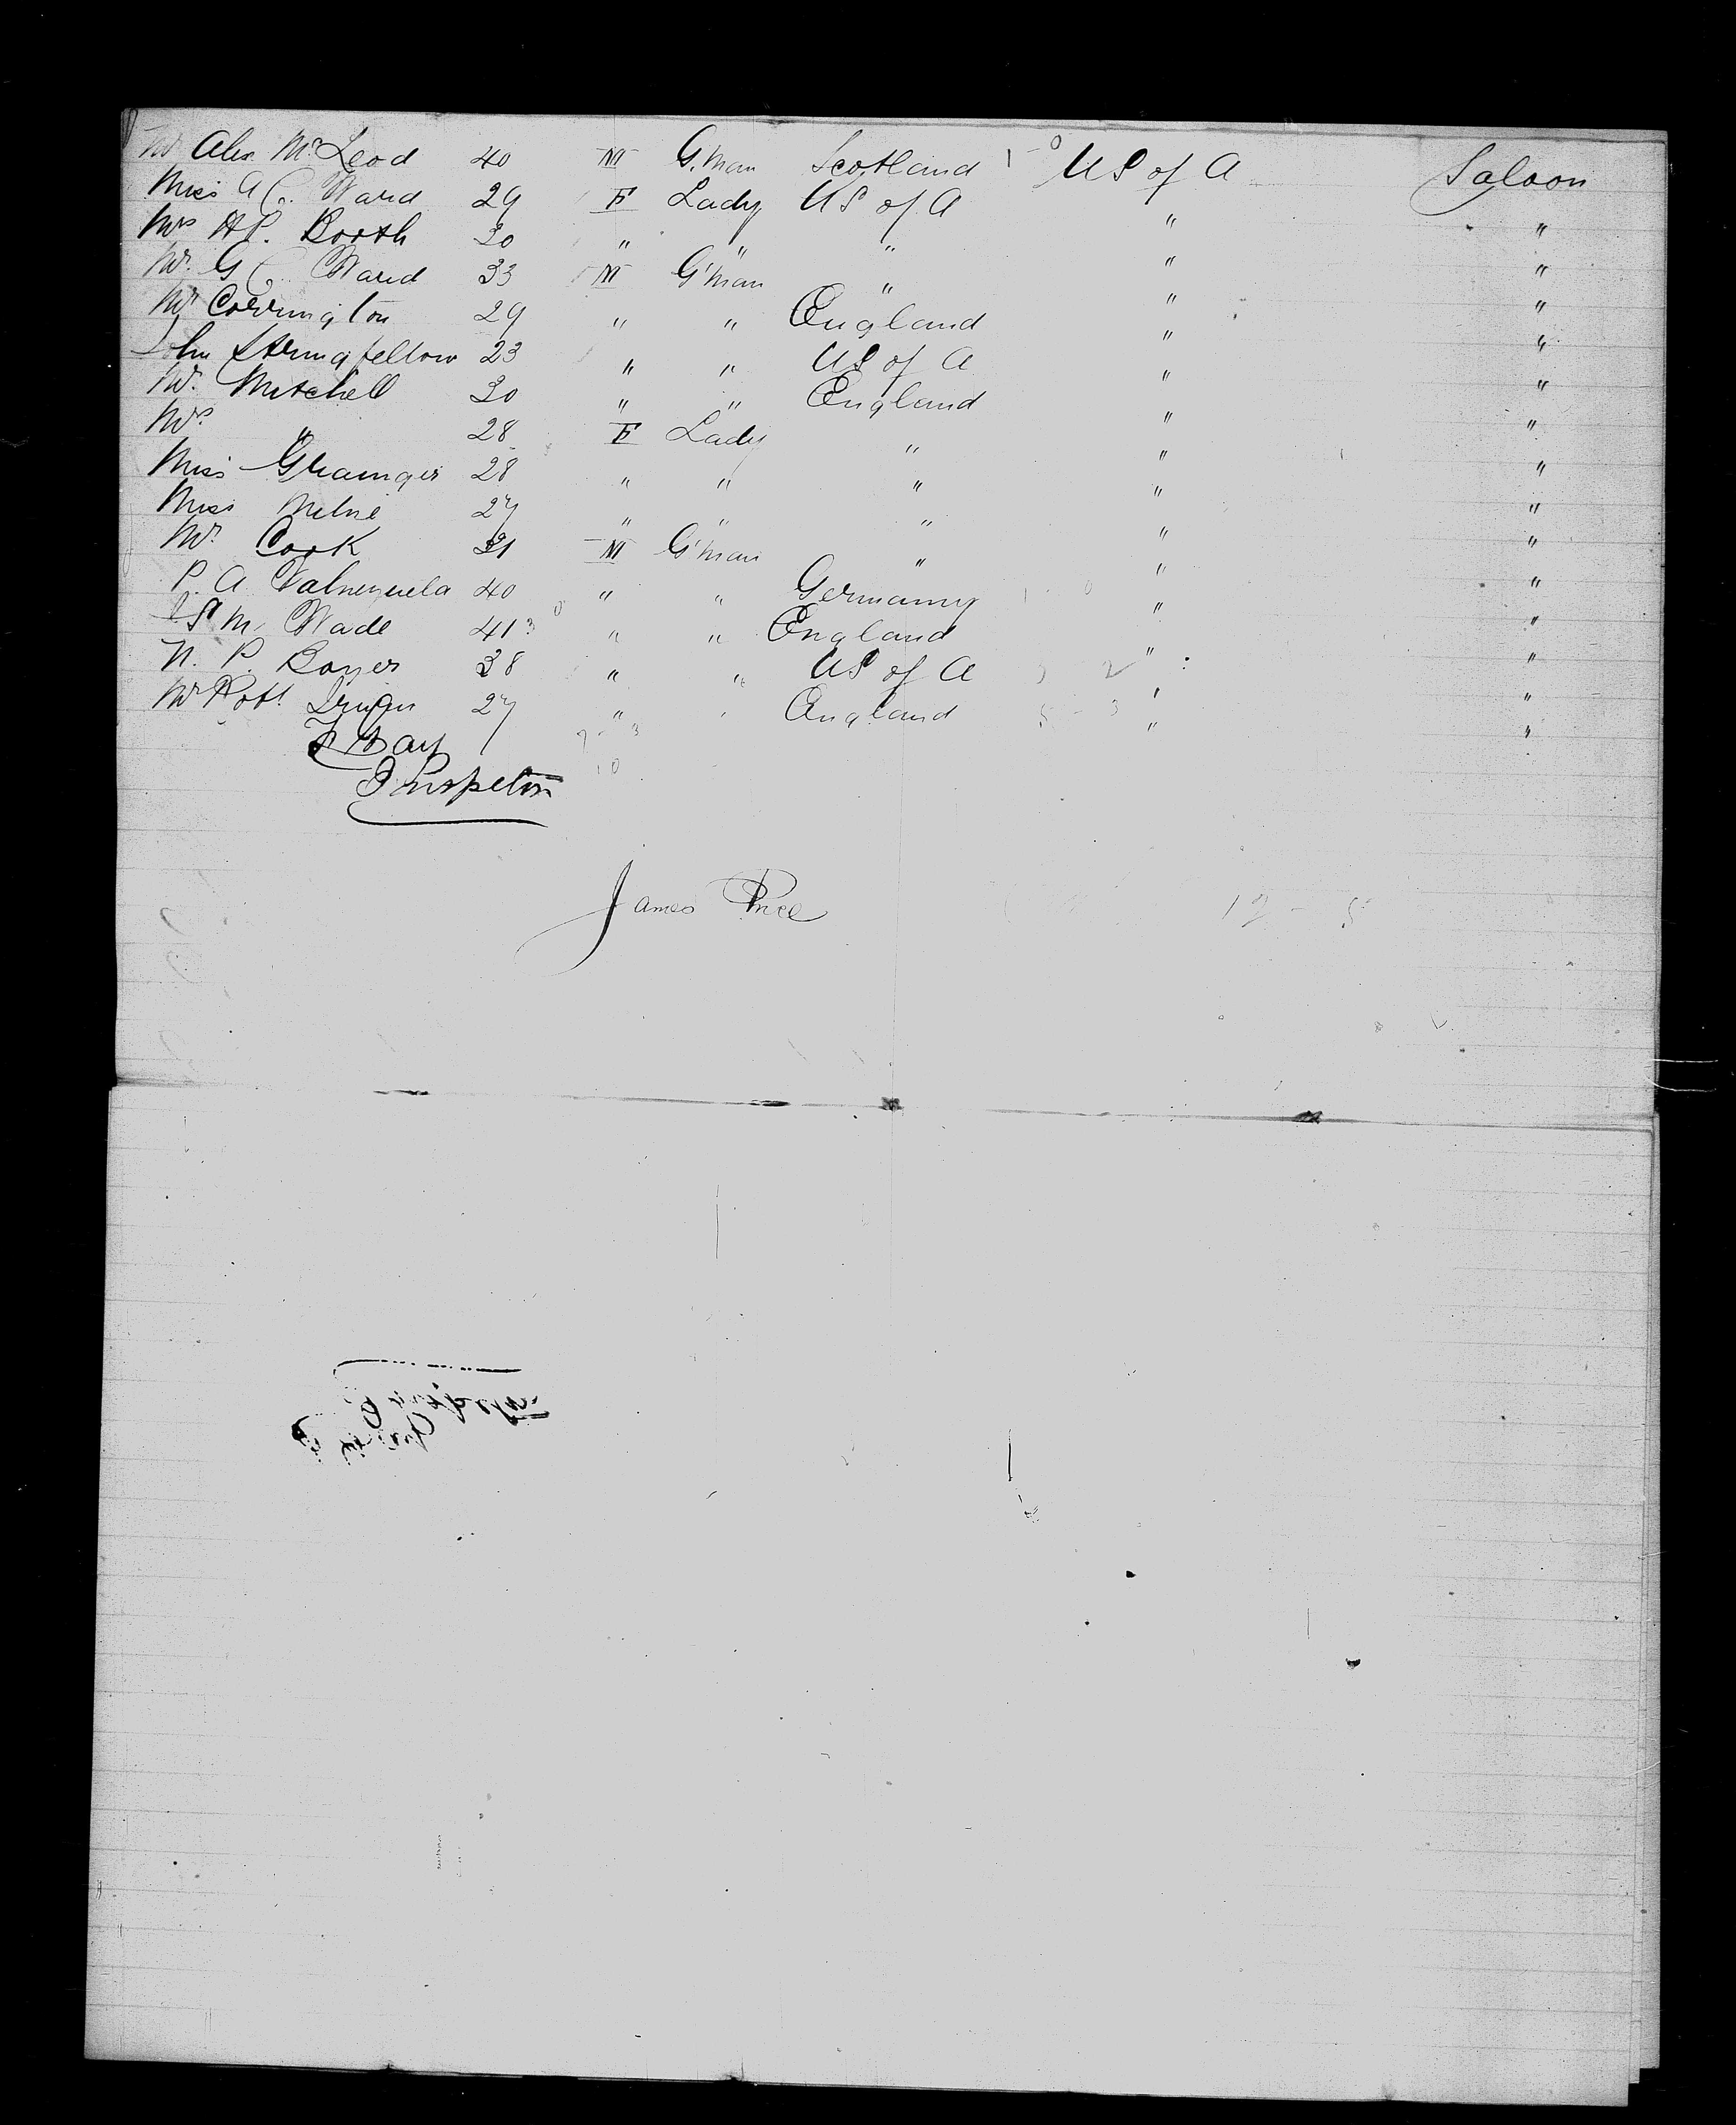 Mr Alex. McLeod 40 M G'man Scotland 1-0 US of A Saloon
Miss A C. Ward 29 F Lady US of A " "
Mrs H P. Booth 30 " " " " "
Mr. G C. Ward 33 M G'man " " "
Mr Corrington 29 " " England " "
John Stringfellow 23 " " US of A " "
Mr. Mitchell 30 " " England " "
Mrs " 28 F Lady " " "
Miss Grainger 28 " " " " "
Miss Milne 27 " " " " "
Mr. Cook 31 M G'man " " "
P. A. 40 " " Germany 1 - 0 " "
St M. Wade 41 " " England " "
N. P. Boyer 38 " " US of A 2 " "
Mr Robt. 27 " " England 5 - 3 " "
7 - 3 " "
Inspector 10
James Price 12 - 5